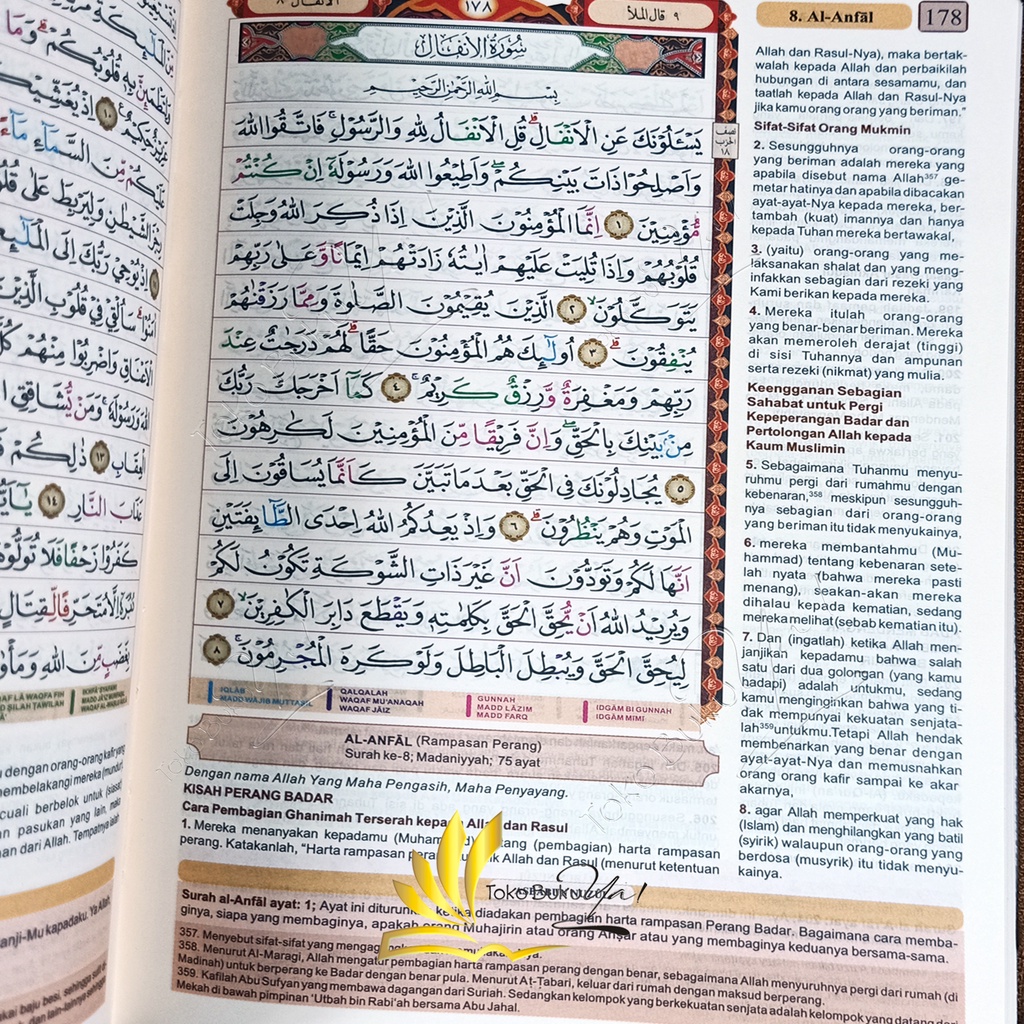 ١٧٨
٩ قال الملأ
8. Al-Anfāl
178
سُورَةُ الْاَنْفَالِ
بِسْمِ اللّٰهِ الرَّحْمٰنِ الرَّحِيْمِ
يَسْـَٔلُوْنَكَ عَنِ الْاَنْفَالِۗ قُلِ الْاَنْفَالُ لِلّٰهِ وَالرَّسُوْلِۚ فَاتَّقُوا اللّٰهَ
وَاَصْلِحُوْا ذَاتَ بَيْنِكُمْۖ وَاَطِيْعُوا اللّٰهَ وَرَسُوْلَهٗٓ اِنْ كُنْتُمْ
مُّؤْمِنِيْنَ ١ اِنَّمَا الْمُؤْمِنُوْنَ الَّذِيْنَ اِذَا ذُكِرَ اللّٰهُ وَجِلَتْ
قُلُوْبُهُمْ وَاِذَا تُلِيَتْ عَلَيْهِمْ اٰيٰتُهٗ زَادَتْهُمْ اِيْمَانًا وَّعَلٰى رَبِّهِمْ
يَتَوَكَّلُوْنَۙ ٢ الَّذِيْنَ يُقِيْمُوْنَ الصَّلٰوةَ وَمِمَّا رَزَقْنٰهُمْ
يُنْفِقُوْنَۗ ٣ اُولٰۤىِٕكَ هُمُ الْمُؤْمِنُوْنَ حَقًّاۗ لَهُمْ دَرَجٰتٌ عِنْدَ
رَبِّهِمْ وَمَغْفِرَةٌ وَّرِزْقٌ كَرِيْمٌۚ ٤ كَمَآ اَخْرَجَكَ رَبُّكَ
مِنْۢ بَيْتِكَ بِالْحَقِّۖ وَاِنَّ فَرِيْقًا مِّنَ الْمُؤْمِنِيْنَ لَكٰرِهُوْنَ
٥ يُجَادِلُوْنَكَ فِى الْحَقِّ بَعْدَ مَا تَبَيَّنَ كَاَنَّمَا يُسَاقُوْنَ اِلَى
الْمَوْتِ وَهُمْ يَنْظُرُوْنَۗ ٦ وَاِذْ يَعِدُكُمُ اللّٰهُ اِحْدَى الطَّاۤىِٕفَتَيْنِ
اَنَّهَا لَكُمْ وَتَوَدُّوْنَ اَنَّ غَيْرَ ذَاتِ الشَّوْكَةِ تَكُوْنُ لَكُمْ
وَيُرِيْدُ اللّٰهُ اَنْ يُّحِقَّ الْحَقَّ بِكَلِمٰتِهٖ وَيَقْطَعَ دَابِرَ الْكٰفِرِيْنَۙ ٧
لِيُحِقَّ الْحَقَّ وَيُبْطِلَ الْبَاطِلَ وَلَوْ كَرِهَ الْمُجْرِمُوْنَۚ ٨
نصف
الحزب
١٨
IQLAB
MADD WAJIB MUTTASIL
QALQALAH
WAQAF MU'ANAQAH
WAQAF JĀIZ
GUNNAH
MADD LĀZIM
MADD FARQ
IDGĀM BI GUNNAH
IDGĀM MIMI
AL-ANFĀL (Rampasan Perang)
Surah ke-8; Madaniyyah; 75 ayat
Dengan nama Allah Yang Maha Pengasih, Maha Penyayang.
KISAH PERANG BADAR
Cara Pembagian Ghanimah Terserah kepada Allah dan Rasul
1. Mereka menanyakan kepadamu (Muhammad) tentang (pembagian) harta rampasan
perang. Katakanlah, "Harta rampasan perang itu milik Allah dan Rasul (menurut ketentuan
Allah dan Rasul-Nya), maka bertak-
walah kepada Allah dan perbaikilah
hubungan di antara sesamamu, dan
taatlah kepada Allah dan Rasul-Nya
jika kamu orang orang yang beriman."
Sifat-Sifat Orang Mukmin
2. Sesungguhnya orang-orang
yang beriman adalah mereka yang
apabila disebut nama Allah357 ge-
metar hatinya dan apabila dibacakan
ayat-ayat-Nya kepada mereka, ber-
tambah (kuat) imannya dan hanya
kepada Tuhan mereka bertawakal,
3. (yaitu) orang-orang yang me-
laksanakan shalat dan yang meng-
infakkan sebagian dari rezeki yang
Kami berikan kepada mereka.
4. Mereka itulah orang-orang
yang benar-benar beriman. Mereka
akan memeroleh derajat (tinggi)
di sisi Tuhannya dan ampunan
serta rezeki (nikmat) yang mulia.
Keengganan Sebagian
Sahabat untuk Pergi
Kepeperangan Badar dan
Pertolongan Allah kepada
Kaum Muslimin
5. Sebagaimana Tuhanmu menyu-
ruhmu pergi dari rumahmu dengan
kebenaran,358 meskipun sesungguh-
nya sebagian dari orang-orang
yang beriman itu tidak menyukainya,
6. mereka membantahmu (Mu-
hammad) tentang kebenaran sete-
lah nyata (bahwa mereka pasti
menang), seakan-akan mereka
dihalau kepada kematian, sedang
mereka melihat (sebab kematian itu).
7. Dan (ingatlah) ketika Allah men-
janjikan kepadamu bahwa salah
satu dari dua golongan (yang kamu
hadapi) adalah untukmu, sedang
kamu menginginkan bahwa yang ti-
dak mempunyai kekuatan senjata-
lah359untukmu.Tetapi Allah hendak
membenarkan yang benar dengan
ayat-ayat-Nya dan memusnahkan
orang orang kafir sampai ke akar
akarnya,
8. agar Allah memperkuat yang hak
(Islam) dan menghilangkan yang batil
(syirik) walaupun orang-orang yang
berdosa (musyrik) itu tidak menyu-
kainya.
Toko Buku
Surah al-Anfāl ayat: 1; Ayat ini diturunkan ketika diadakan pembagian harta rampasan Perang Badar. Bagaimana cara memba-
ginya, siapa yang membaginya, apakah orang Muhajirin atau orang Anṣar atau yang membaginya keduanya bersama-sama.
357. Menyebut sifat-sifat yang
358. Menurut Al-Maragi, Allah mengatur pembagian harta rampasan perang dengan benar, sebagaimana Allah menyuruhnya pergi dari rumah (di
Madinah) untuk berperang ke Badar dengan benar pula. Menurut At-Ṭabari, keluar dari rumah dengan maksud berperang.
359. Kafilah Abu Sufyan yang membawa dagangan dari Suriah. Sedangkan kelompok yang berkekuatan senjata adalah kelompok yang datang dari
Mekah di bawah pimpinan 'Utbah bin Rabi'ah bersama Abu Jahal.